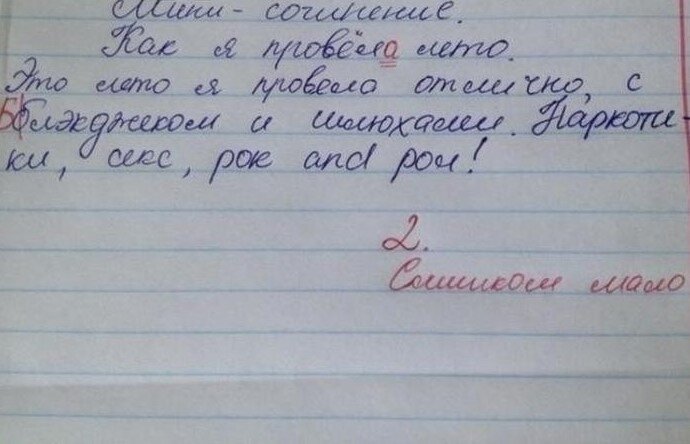 Мини - сочинение.
Как я провёла лето.
Это лето я провела отлично, с
Блэкджеком и шлюхами. Наркоти-
ки, секс, рок and рол!
2.
Слишком мало